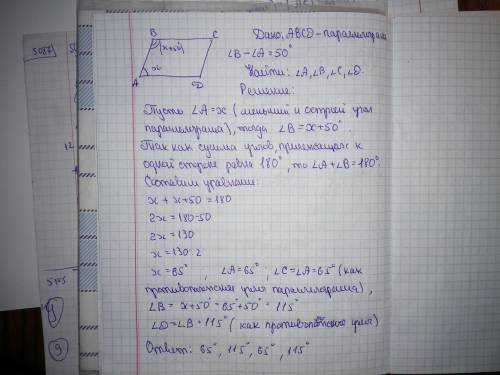 5087
B
C
(x+50°)
x
A
D
Дано: ABCD - параллелограмм
∠B - ∠A = 50°
Найти: ∠A, ∠B, ∠C, ∠D.
Решение:
Пусть ∠A = x (меньший и острый угол
параллелограмма), тогда ∠B = x + 50°.
Так как сумма углов, прилежащих к
одной стороне равна 180°, то ∠A + ∠B = 180°.
Составим уравнение:
x + x + 50 = 180
2x = 180 - 50
2x = 130
x = 130 : 2
x = 65°, ∠A = 65°, ∠C = ∠A = 65° (как
противоположные углы параллелограмма),
∠B = x + 50° = 65° + 50° = 115°
∠D = ∠B = 115° (как противоположные углы)
Ответ: 65°, 115°, 65°, 115°
12
9